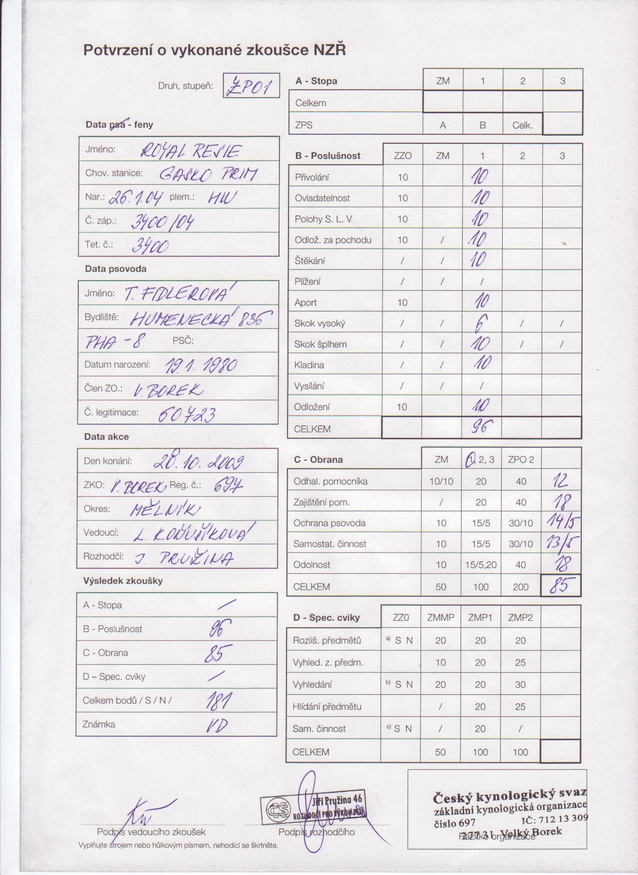 Potvrzení o vykonané zkoušce NZŘ
Druh, stupeň: ZPO1
Data psa - feny
Jméno: ROYAL RESIE
Chov. stanice: GASKO PRIM
Nar.: 26.1.04 plem.: HW
Č. záp.: 3400/04
Tet. č.: 3400
Data psovoda
Jméno: T. FIDLEROVÁ
Bydliště: HUMENECKÁ 836
PHA - 8 PSČ:
Datum narození: 19.1.1980
Člen ZO.: V. BOREK
Č. legitimace: 60723
Data akce
Den konání: 28.10.2009
ZKO: V. BOREK Reg. č.: 697
Okres: MĚLNÍK
Vedoucí: L.
Rozhodčí: J. PRUŽINA
Výsledek zkoušky
A - Stopa /
B - Poslušnost 96
C - Obrana 85
D – Spec. cviky /
Celkem bodů / S / N / 181
Známka VD
A - Stopa ZM 1 2 3
Celkem
ZPS A B Celk.
B - Poslušnost ZZO ZM 1 2 3
Přivolání 10 10
Ovladatelnost 10 10
Polohy S. L. V 10 10
Odlož. za pochodu 10 / 10
Štěkání / / 10
Plížení / / /
Aport 10 10
Skok vysoký / / 6 / /
Skok šplhem / / 10 / /
Kladina / / 10
Vysílání / / /
Odložení 10 10
CELKEM 96
C - Obrana ZM 1, 2, 3 ZPO 2
Odhal. pomocníka 10/10 20 40 12
Zajištění pom. / 20 40 18
Ochrana psovoda 10 15/5 30/10 14/5
Samostat. činnost 10 15/5 30/10 13/5
Odolnost 10 15/5,20 40 18
CELKEM 50 100 200 85
D - Spec. cviky ZZ0 ZMMP ZMP1 ZMP2
Rozliš. předmětů a) S N 20 20 20
Vyhled. z. předm. 10 20 25
Vyhledání b) S N 20 20 30
Hlídání předmětu / 20 25
Sam. činnost c) S N / 20 /
CELKEM 50 100 100
Jiří Pružina 46
ROZHODČÍ PRO VÝKON
Český kynologický svaz
základní kynologická organizace
číslo 697 IČ: 712 13 309
277 31 Velký Borek
Podpis vedoucího zkoušek
Podpis rozhodčího
Vyplňujte strojem nebo hůlkovým písmem, nehodící se škrtněte.